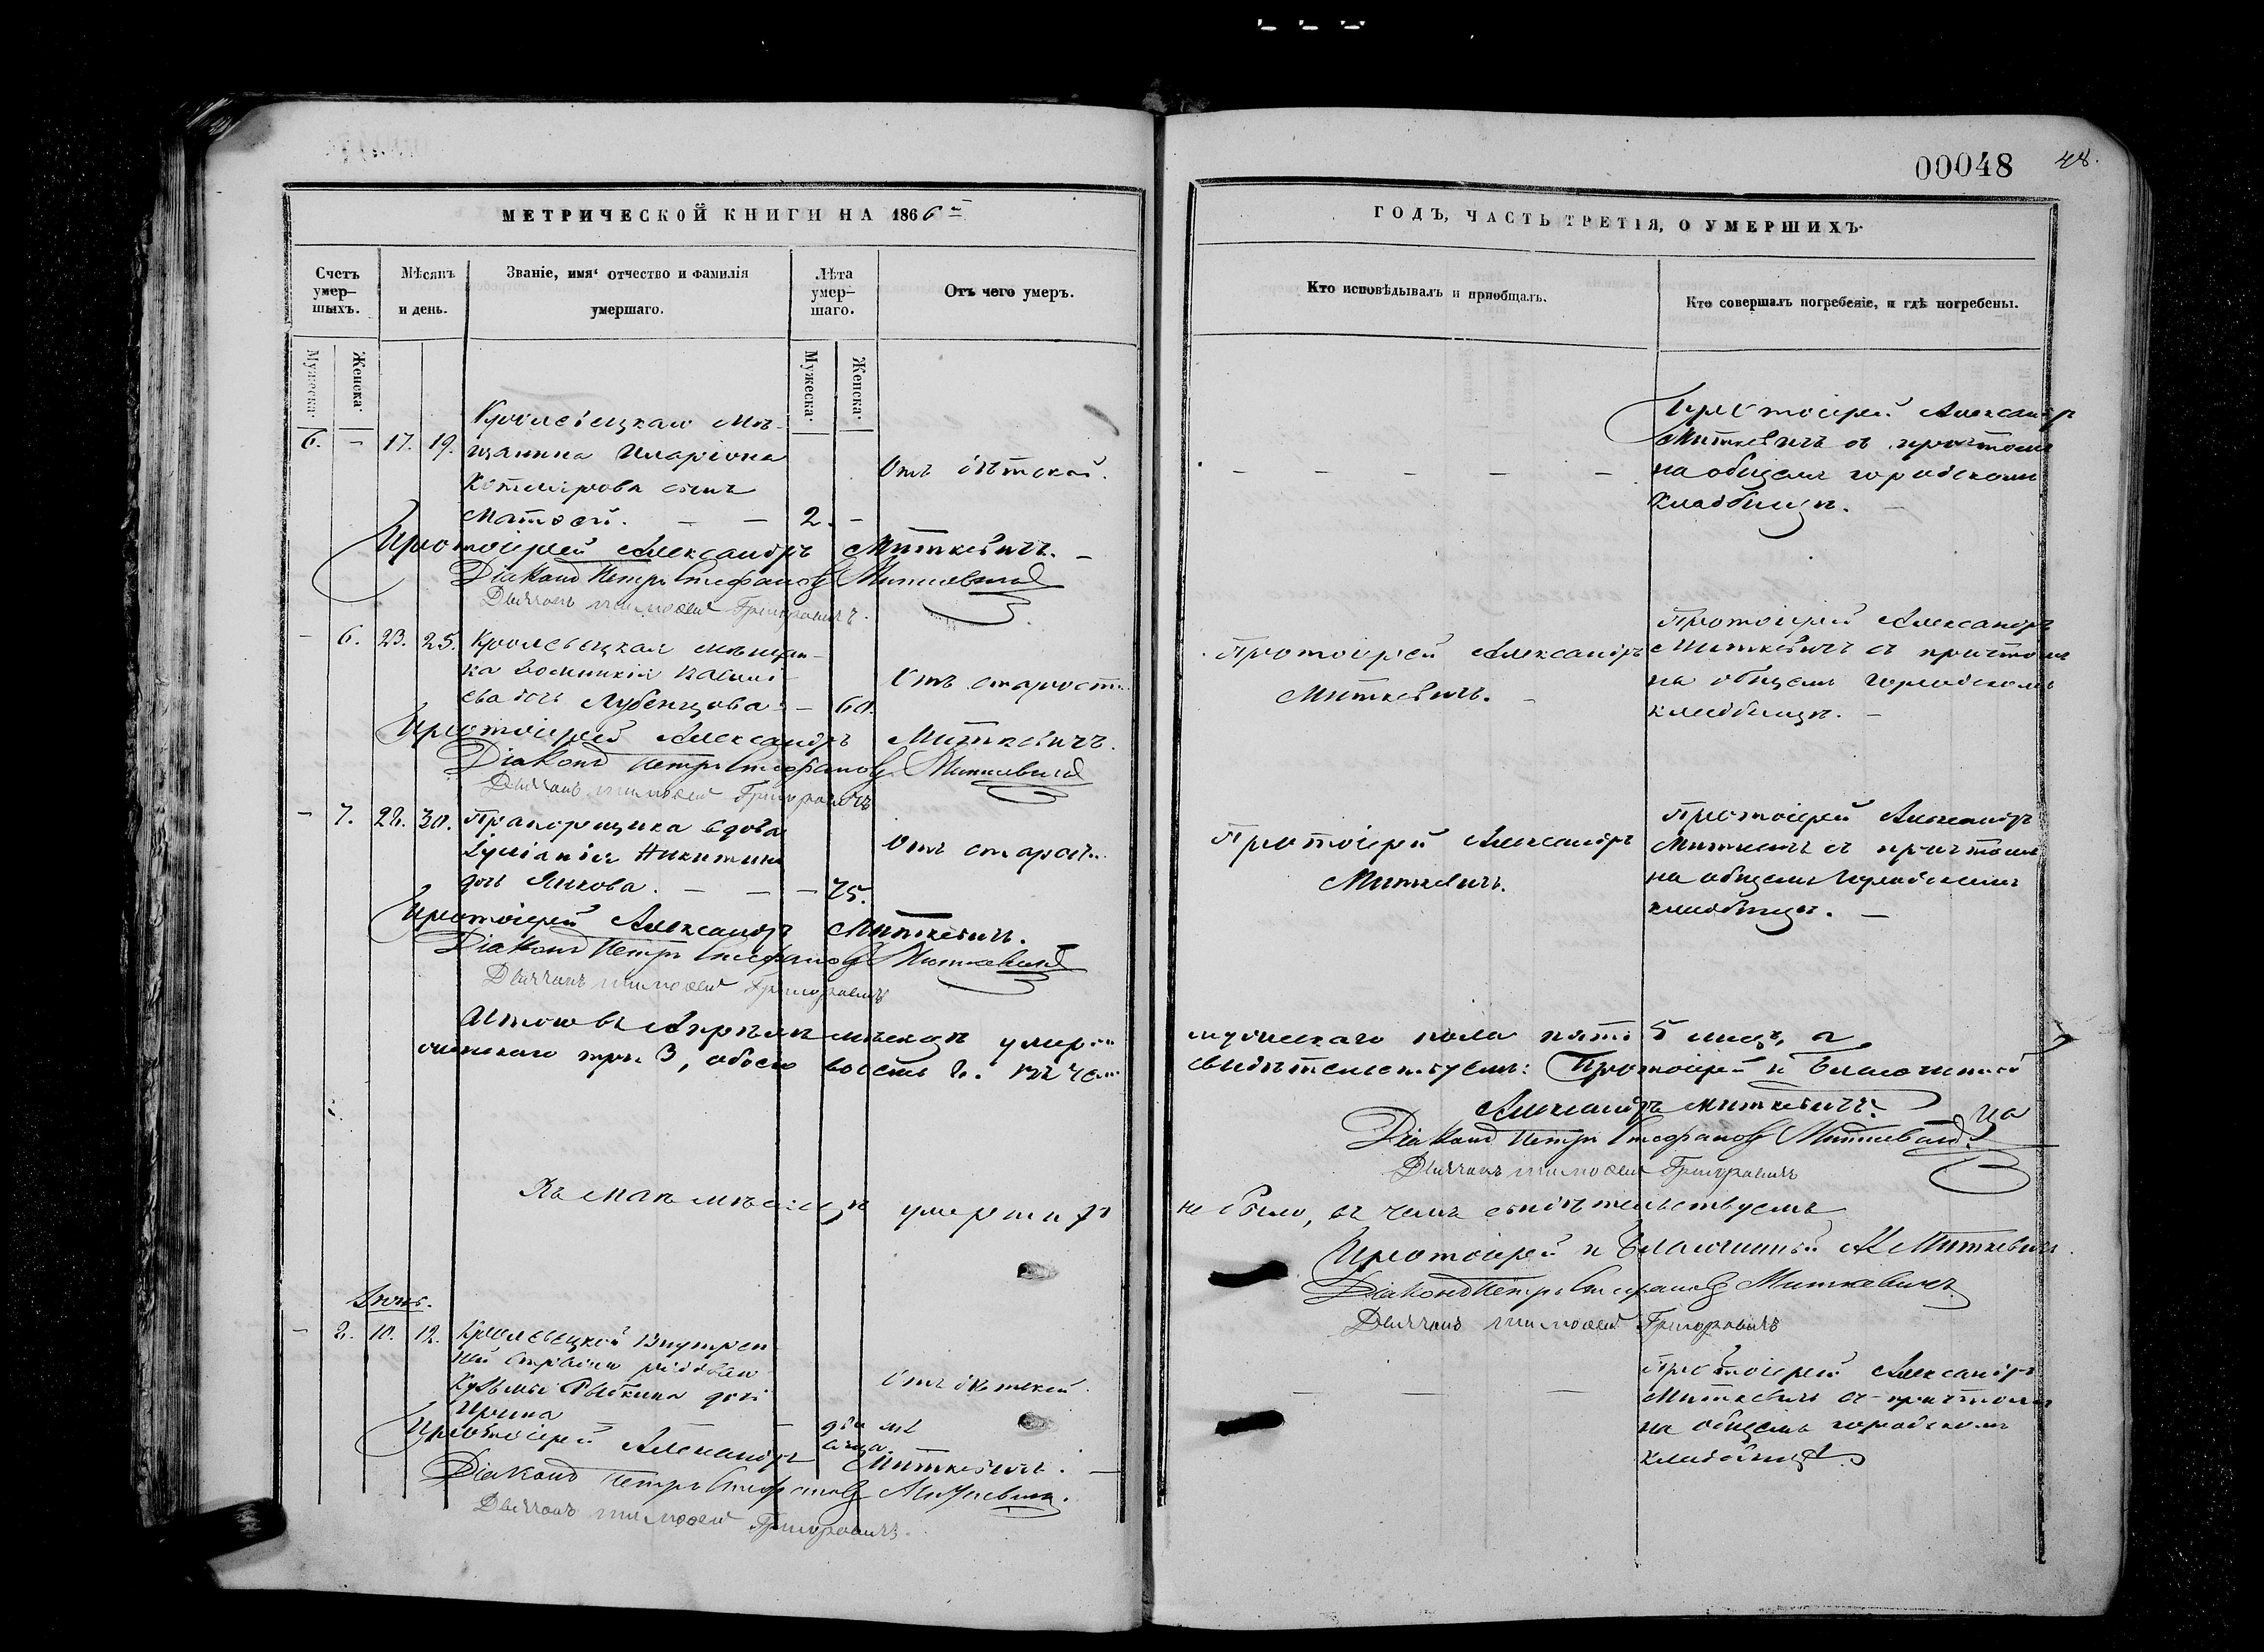 00048 48.
МЕТРИЧЕСКОЙ КНИГИ НА 1866
ГОДЪ, ЧАСТЬ ТРЕТІЯ, О УМЕРШИХЪ.
Счетъ умер-шыхъ.
Мѣсяцъ и день.
Званіе, имя отчество и фамилія умершаго.
Лѣта умер-шаго.
Отъ чего умеръ.
Кто исповѣдывалъ и пріобщалъ.
Кто совершалъ погребеніе, и гдѣ погребены.
Мужеска.
Женска.
Мужеска.
Женска.
6. – 17. 19.
Кролевецкаго мѣ-
щанина Иларіона
сынъ
Матѳей. – – 2. –
Отъ дѣтской.
– – – – –
Протоіерей Александръ
Миткевичъ съ причтомъ
на общемъ городскомъ
кладбищѣ. –
Протоіерей Александръ Миткевичъ. –
Діаконъ Петръ Стефановъ Миткевичъ
Дьячокъ Тимоѳей Григоровичъ.
– 6. 23. 25.
Кролевецкая мѣщан-
ка Домникія Васильі-
ева дочь Лубенцова – 60.
Отъ старости.
Протоіерей Александръ
Миткевичъ. –
Протоіерей Александръ
Миткевичъ съ причтомъ
на общемъ городскомъ
кладбищѣ. –
Протоіерей Александръ Миткевичъ.
Діаконъ Петръ Стефановъ Миткевичъ
Дьячокъ Тимоѳей Григоровичъ
– 7. 28. 30.
Прапорщика вдова
Іуліанія Никитина
дочь Янкова. – – – 75.
Отъ старости.
Протоіерей Александръ
Миткевичъ.
Протоіерей Александръ
Миткевичъ съ причтомъ
на общемъ городскомъ
кладбищѣ. –
Протоіерей Александръ Миткевичъ.
Діаконъ Петръ Стефановъ Миткевичъ
Дьячокъ Тимоѳей Григоровичъ
Итого въ Апрѣлѣ мѣсяцѣ умерло мужескаго пола пять 5 лицъ, а
женскаго три 3, обоего восемь 8. въ чемъ свидѣтельствуемъ: Протоіерей и Благочинный
Александръ Миткевичъ.
Діаконъ Петръ Стефановъ Миткевичъ.
Дьячокъ Тимоѳей Григоровичъ
Въ Маѣ мѣсяцѣ умершихъ не было, въ чемъ свидѣтельствуемъ
Протоіерей и Благочинный А. Миткевичъ.
Діаконъ Петръ Стефановъ Миткевичъ
Дьячокъ Тимоѳей Григоровичъ
Іюнь.
– 8. 10. 12.
Кролевецкой внутрен-
ней стражи рядового
Кузьмы Рыбкина дочь
Ирина – два мѣ
сяца.
Отъ дѣтской.
– – –
Протоіерей Александръ
Миткевичъ съ причтомъ
на общемъ городскомъ
кладбищѣ.
Протоіерей Александръ Миткевичъ. –
Діаконъ Петръ Стефановъ Миткевичъ.
Дьячокъ Тимоѳей Григоровичъ.